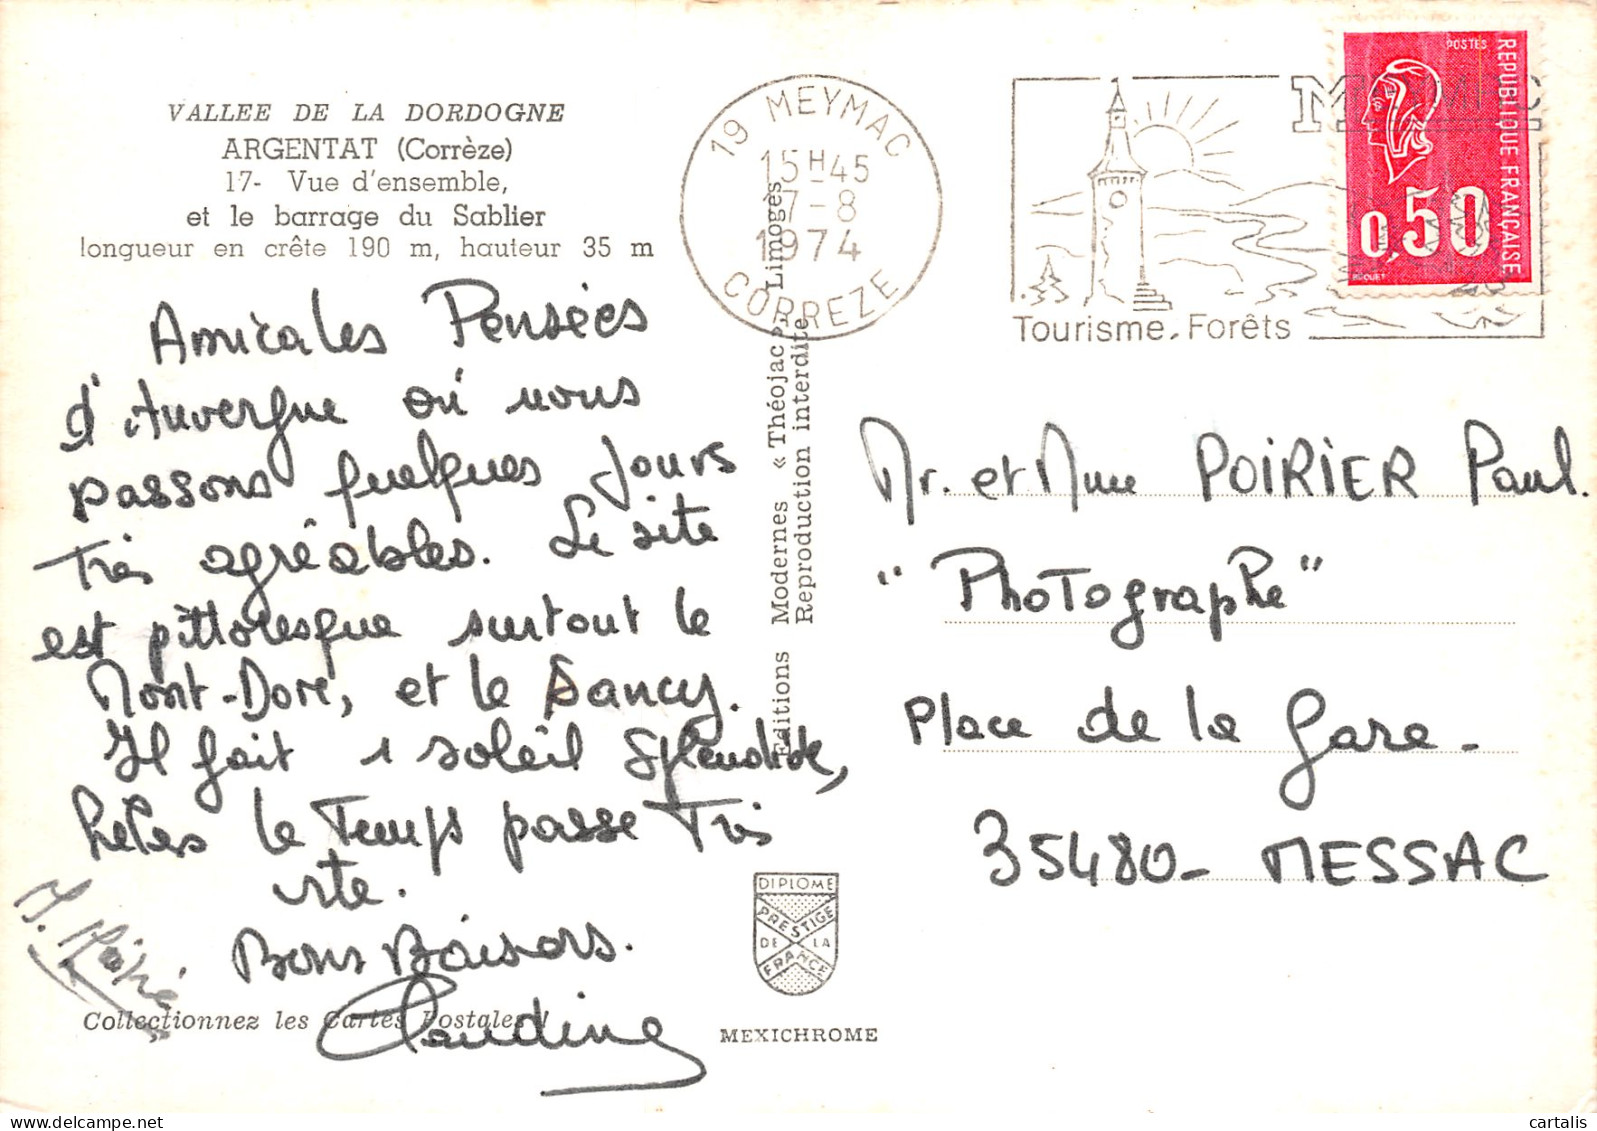 VALLEE DE LA DORDOGNE
ARGENTAT (Corrèze)
17- Vue d'ensemble,
et le barrage du Sablier
longueur en crête 190 m, hauteur 35 m
Amicales Pensées
d'Auvergne où nous
passons quelques jours
Très agréables. Le site
est pittoresque surtout le
Mont-Dore, et le Sancy.
Il fait 1 soleil Splendide,
hélas le Temps passe Très
vite.
Bons Baisers.
Claudine
Collectionnez les Cartes Postales !
19 MEYMAC
15H45
7-8
1974
CORREZE
MEYMAC
Tourisme. Forêts
POSTES
REPUBLIQUE FRANÇAISE
0,50
BEQUET
Editions Modernes « Théojac », Limoges
Reproduction interdite
Mr. et Mme POIRIER Paul.
"Photographe"
Place de la Gare.
35480- MESSAC
DIPLOME
PRESTIGE
DE LA
FRANCE
MEXICHROME
cartalis